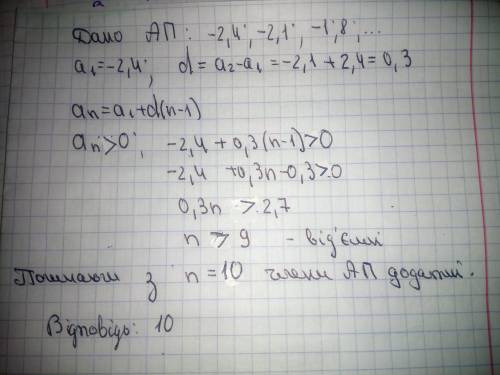 Дано АП: -2,4; -2,1; -1,8; ...
a₁=-2,4; d=a₂-a₁=-2,1+2,4=0,3
aₙ=a₁+d(n-1)
aₙ>0; -2,4+0,3(n-1)>0
-2,4 +0,3n-0,3>0
0,3n >2,7
n >9 - від'ємні
Починаючи з n=10 члени АП додатні.
Відповідь: 10